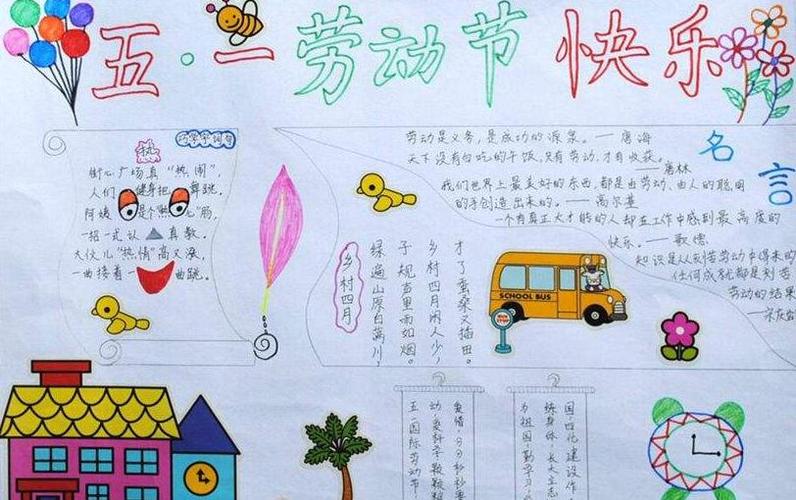 五·一劳动节快乐
巧学字词句
热
街心广场真“热闹”,
人们 健身把 舞跳。
阿姨 是个“热心”肠,
一招一式认 真教。
大伙儿“热情”高又涨,
一曲接着一曲跳。
乡村四月
绿遍山原白满川,
子规声里雨如烟。
乡村四月闲人少,
才了蚕桑又插田。
名言
劳动是义务,是成功的源泉。——唐海
天下没有白吃的午饭,只有劳动,才有收获。
我们世界上最美好的东西,都是由劳动、由人的聪明
的手创造出来的。——高尔基
一个有真正大才能的人却在工作中感到最高度的
快乐。——歌德
知识是从刻苦劳动中得来的
任何成就都是刻苦
劳动的结果
SCHOOL BUS
BUS STOP
五一国际劳动节
动,爱科学,
爱惜,分分秒秒要
为祖国,勤学习
练身体,长大立志
国,四化建设作